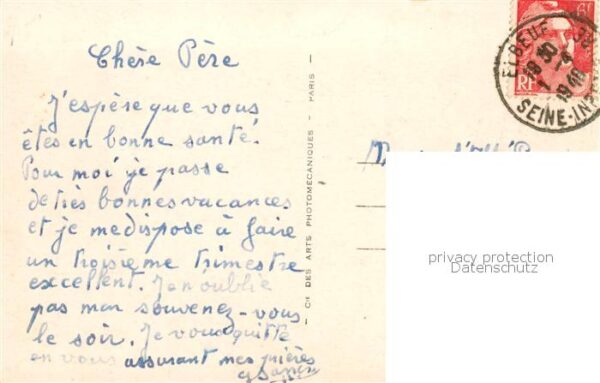 Chère Père
J'espère que vous
êtes en bonne santé.
Pour moi je passe
de très bonnes vacances
et je me dispose à faire
un troisième trimestre
excellent. Je n'oublie
pas mon souvenez-vous
le soir. Je vous quitte
en vous assurant mes prières
Cie DES ARTS PHOTOMÉCANIQUES - PARIS -
6f
RF
ELBEUF
18 30
1 - 4
1948
SEINE-INF
privacy protection
Datenschutz